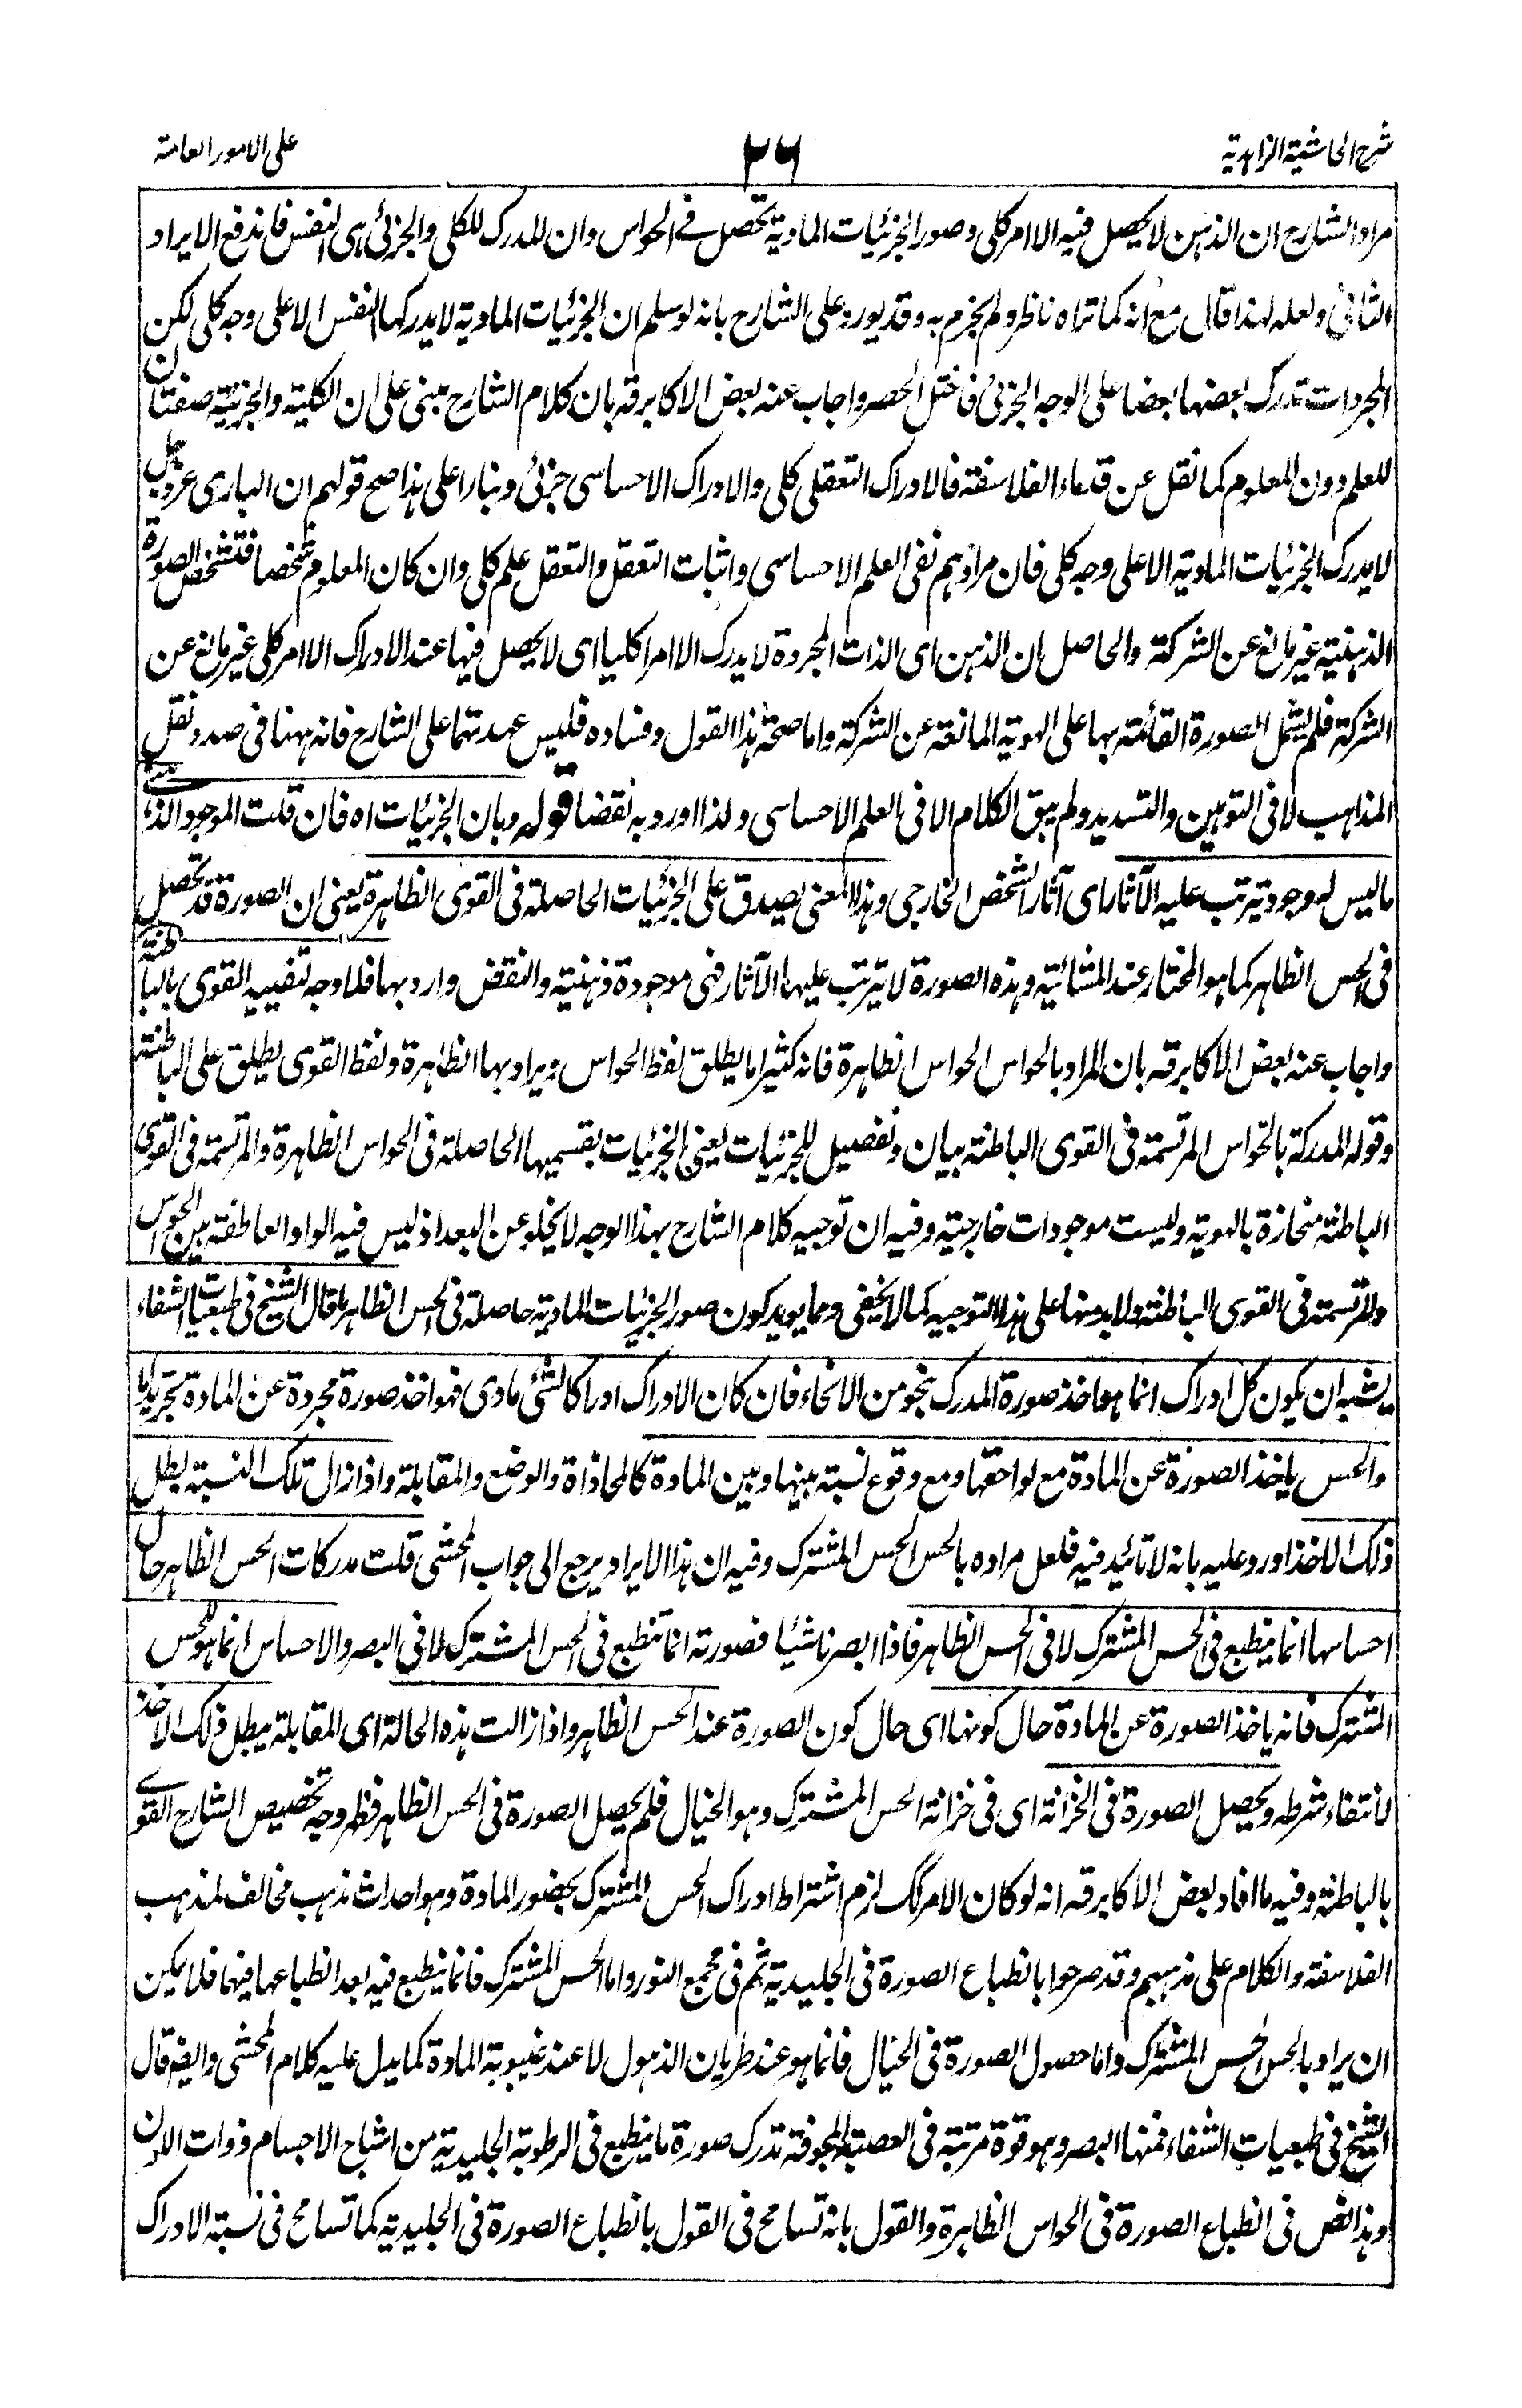 شرح الحاشية الزاهدية
٢٦
على الامور العامة
مراد الشارح ان الذهن لا يحصل فيه الا امر كلى وصور الجزئيات المادية تحصل فى الحواس وان المدرك للكلى والجزئى هى النفس فاندفع الايراد
الثانى ولعله لهذا قال مع انه كما تراه ناظر ولم يجزم به وقد يورد على الشارح بانه لو سلم ان الجزئيات المادية لا يدركها النفس الا على وجه كلى لكن
المجردات تدرك بعضها بعضا على الوجه الجزئى فاختل الحصر واجاب عنه بعض الاكابر قه بان كلام الشارح مبنى على ان الكلية والجزئية صفتان
للعلم دون المعلوم كما نقل عن قدماء الفلاسفة فالادراك التعقلى كلى والادراك الاحساسى جزئى وبناء على هذا صح قولهم ان البارى عز وجل
لا يدرك الجزئيات المادية الا على وجه كلى فان مرادهم نفى العلم الاحساسى واثبات التعقل والتعقل علم كلى وان كان المعلوم شخصا فتشخص الصورة
الذهنية غير مانع عن الشركة والحاصل ان الذهن اى الذات المجردة لا يدرك الا امرا كليا اى لا يحصل فيها عند الادراك الا امر كلى غير مانع عن
الشركة فلم يشمل الصورة القائمة بها على الهوية المانعة عن الشركة واما صحة هذا القول وفساده فليس عهدتهما على الشارح فانه ههنا فى صدد نقل
المذاهب لا فى التوهين والتسديد ولم يبق الكلام الا فى العلم الاحساسى ولذا اورد به نقضا قوله وبان الجزئيات اه فان قلت الموجود الذهنى
ما ليس له وجود يترتب عليه الآثار اى آثار الشخص الخارجى وهذا المعنى يصدق على الجزئيات الحاصلة فى القوى الظاهرة يعنى ان الصورة قد تحصل
فى الحس الظاهر كما هو المختار عند المشائية وهذه الصورة لا يترتب عليها الآثار فهى موجودة ذهنية والنقض وارد بها فلا وجه لتقييد القوى بالباطنة
واجاب عنه بعض الاكابر قه بان المراد بالحواس الحواس الظاهرة فانه كثيرا ما يطلق لفظ الحواس ويراد بها الظاهرة ولفظ القوى يطلق على الباطنة
وقوله المدركة بالحواس المرتسمة فى القوى الباطنة بيان وتفصيل للجزئيات يعنى الجزئيات بقسميها الحاصلة فى الحواس الظاهرة والمرتسمة فى القوى
الباطنة منحازة بالهوية وليست موجودات خارجية وفيه ان توجيه كلام الشارح بهذا الوجه لا يخلو عن البعد اذ ليس فيه الواو العاطفة بين الحواس
والمرتسمة فى القوى الباطنة ولا بد منها على هذا التوجيه كما لا يخفى ومما يويد كون صور الجزئيات المادية حاصلة فى الحس الظاهر ما قال الشيخ فى طبعيات الشفاء
يشبه ان يكون كل ادراك انما هو اخذ صورة المدرك بنحو من الانحاء فان كان الادراك ادراكا لشئ مادى فهو اخذ صورة مجردة عن المادة تجريدا ما
والحس ياخذ الصورة عن المادة مع لواحقها ومع وقوع نسبة بينها وبين المادة كالمحاذاة والوضع والمقابلة واذا زال تلك النسبة بطل
ذلك الاخذ اورد عليه بانه لا تائيد فيه فلعل مراده بالحس الحس المشترك وفيه ان هذا الايراد يرجع الى جواب المحشى قلت مدركات الحس الظاهر حال
احساسها انما ينطبع فى الحس المشترك لا فى الحس الظاهر فاذا ابصرنا شيئا فصورته انما تنطبع فى الحس المشترك لا فى البصر والاحساس انما هو للحس
المشترك فانه ياخذ الصورة عن المادة حال كونها اى حال كون الصورة عند الحس الظاهر واذا زالت هذه الحالة اى المقابلة يبطل ذلك الاخذ
لانتفاء شرطه ويحصل الصورة فى الخزانة اى فى خزانة الحس المشترك وهو الخيال فلم يحصل الصورة فى الحس الظاهر فظهر وجه تخصيص الشارح القوى
بالباطنة وفيه ما افاد بعض الاكابر قه انه لو كان الامر كك لزم اشتراط ادراك الحس المشترك بحضور المادة وهو احداث مذهب مخالف لمذهب
الفلاسفة والكلام على مذهبهم وقد صرحوا بانطباع الصورة فى الجليدية ثم فى مجمع النور واما الحس المشترك فانما ينطبع فيه بعد انطباعها فيهما فلا يمكن
ان يراد بالحس الحس المشترك واما حصول الصورة فى الخيال فانما هو عند طريان الذهول لا عند غيبوبة المادة كما يدل عليه كلام المحشى وايضه قال
الشيخ فى طبعيات الشفاء فمنها البصر وهو قوة مرتبة فى العصبة المجوفة تدرك صورة ما ينطبع فى الرطوبة الجليدية من اشباح الاجسام ذوات الالوان
وهذا نص فى انطباع الصورة فى الحواس الظاهرة والقول بانه تسامح فى القول بانطباع الصورة فى الجليدية كما تسامح فى نسبة الادراك